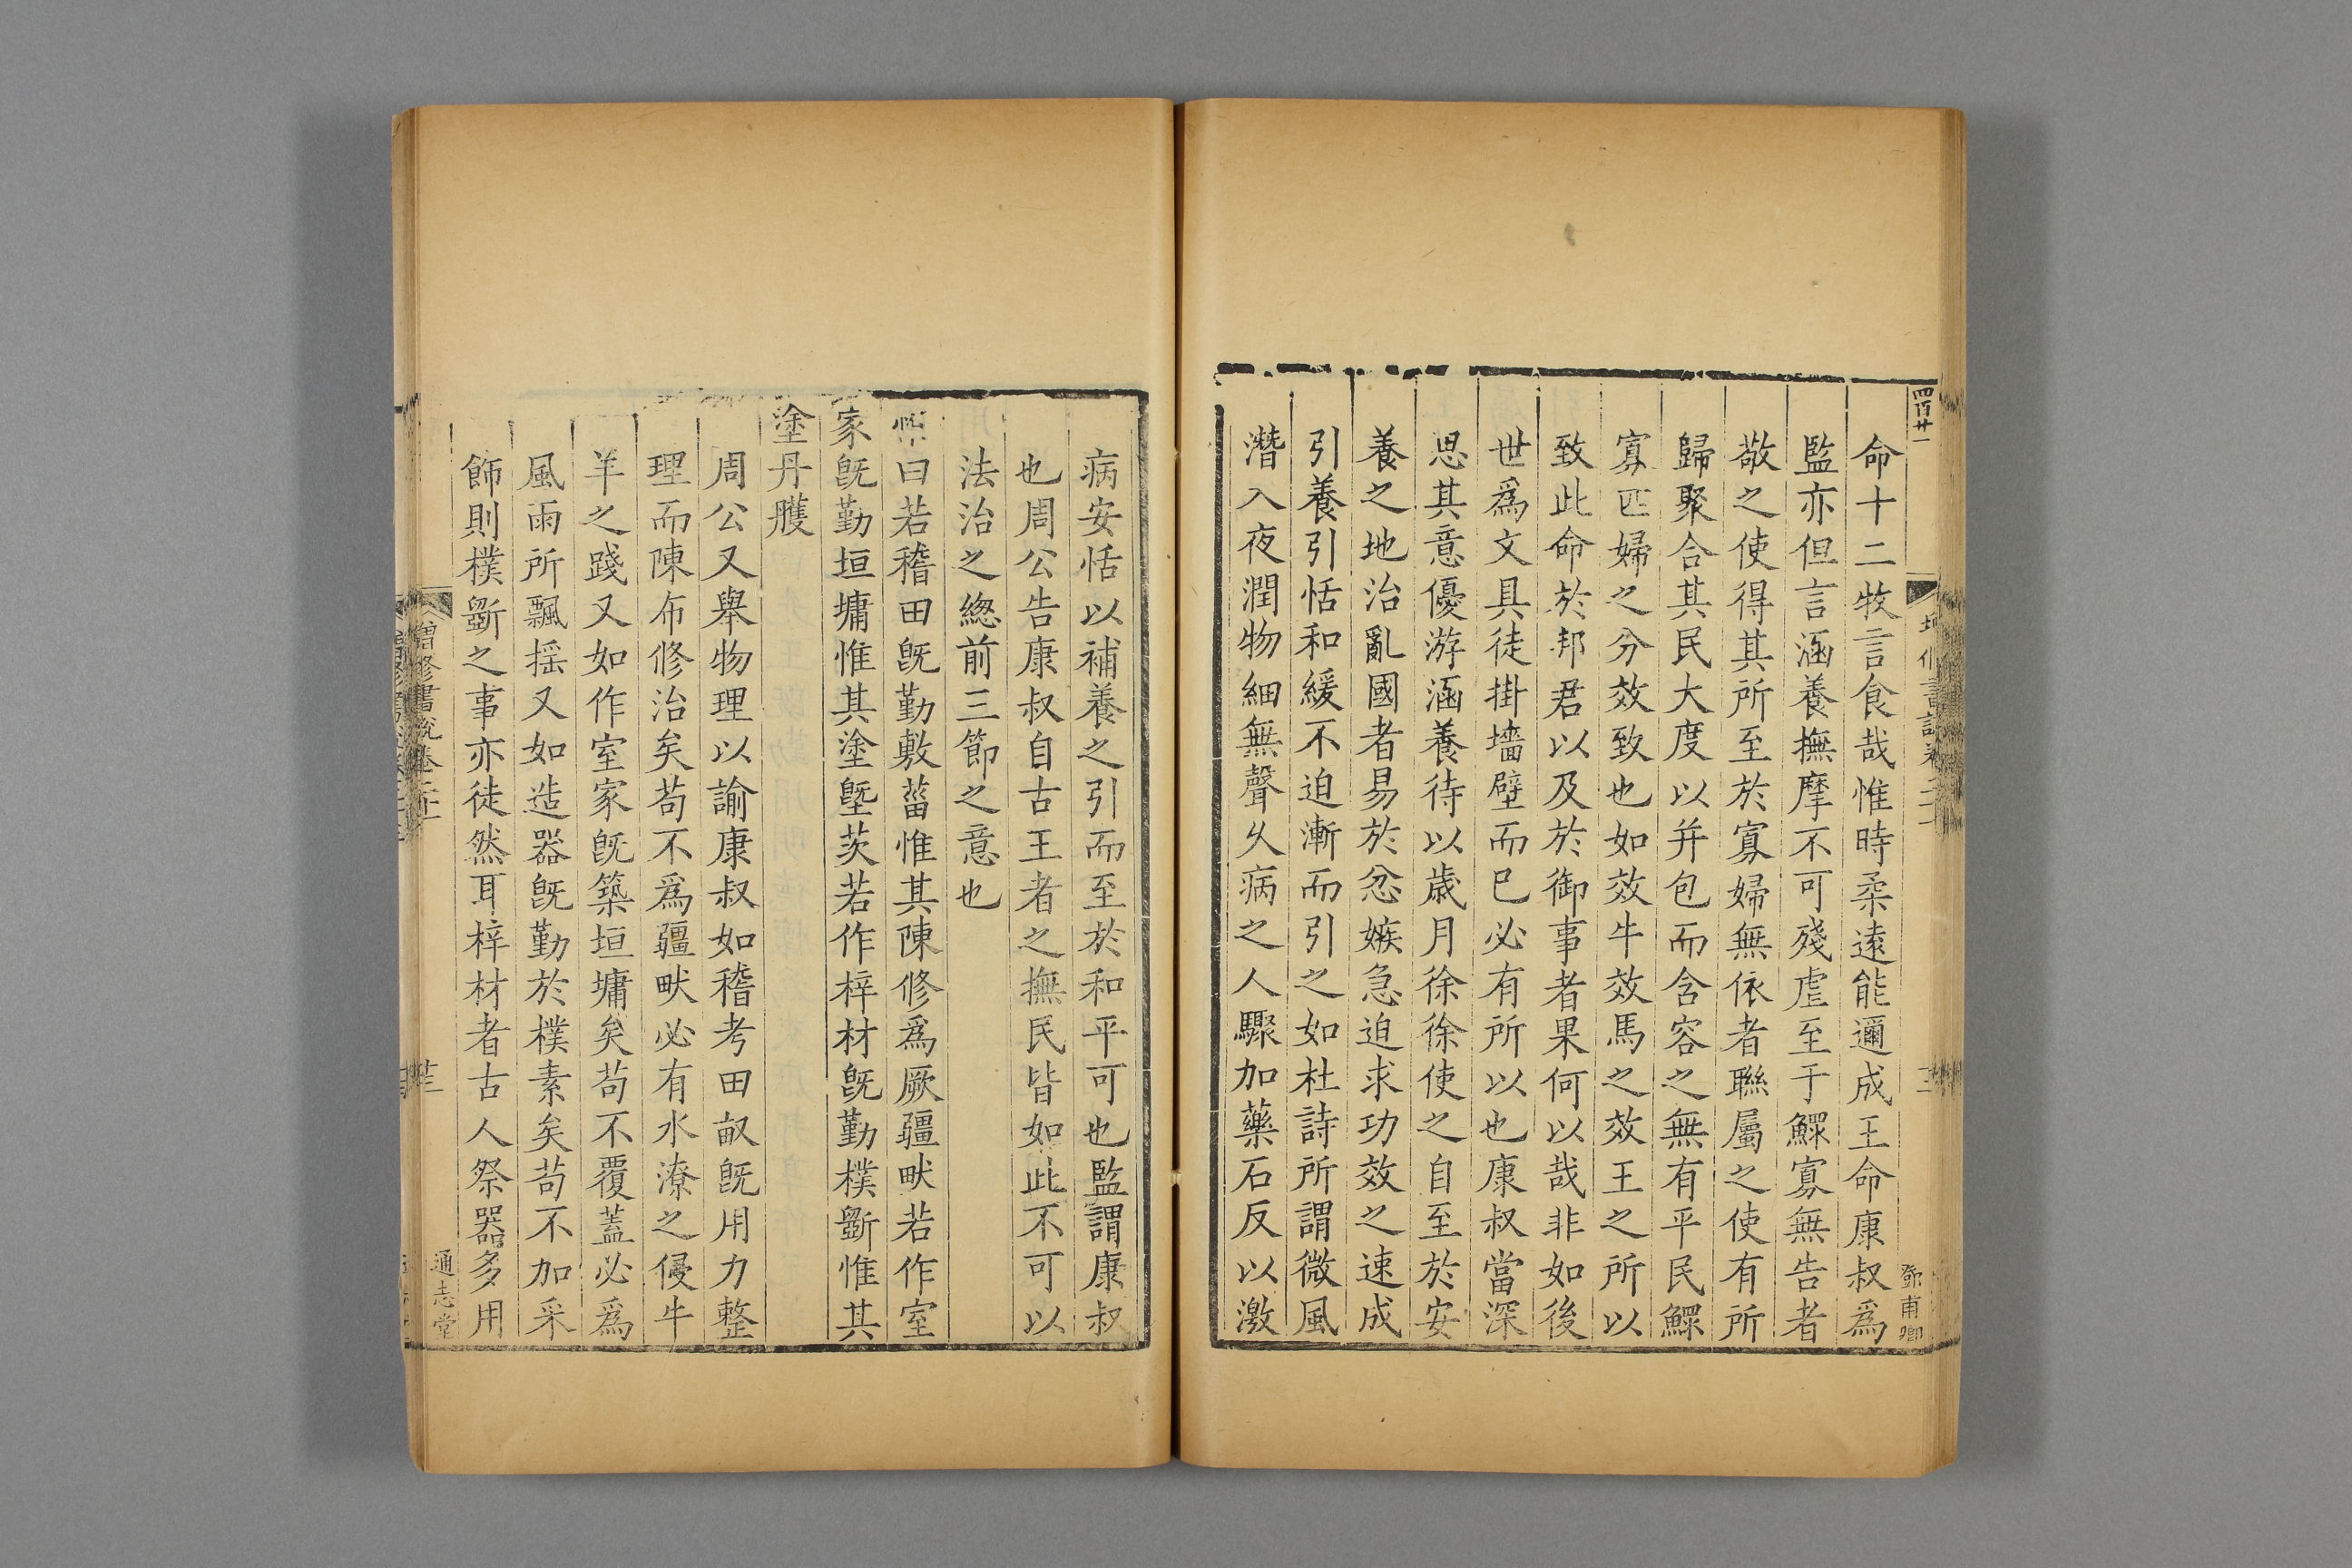 四百廿一
鄧甫卿
命十二牧言食哉惟時柔遠能邇成王命康叔爲
監亦但言涵養撫摩不可殘虐至于鰥寡無告者
敬之使得其所至於寡婦無依者聯屬之使有所
歸聚合其民大度以并包而含容之無有平民鰥
寡匹婦之分效致也如效牛效馬之效王之所以
致此命於邦君以及於御事者果何以哉非如後
世爲文具徒掛墻壁而已必有所以也康叔當深
思其意優游涵養待以歲月徐徐使之自至於安
養之地治亂國者易於忿嫉急迫求功效之速成
引養引恬和緩不迫漸而引之如杜詩所謂微風
潛入夜潤物細無聲久病之人驟加藥石反以激
病安恬以補養之引而至於和平可也監謂康叔
也周公告康叔自古王者之撫民皆如此不可以
法治之緫前三節之意也
惟曰若稽田旣勤敷菑惟其陳修爲厥疆畎若作室
家旣勤垣墉惟其塗塈茨若作梓材旣勤樸斲惟其
塗丹雘
周公又舉物理以諭康叔如稽考田畝旣用力整
理而陳布修治矣苟不爲疆畎必有水潦之侵牛
羊之踐又如作室家旣築垣墉矣苟不覆蓋必爲
風雨所飄揺又如造器旣勤於樸素矣苟不加采
飾則樸斲之事亦徒然耳梓材者古人祭器多用
增修書說卷二十一
通志堂